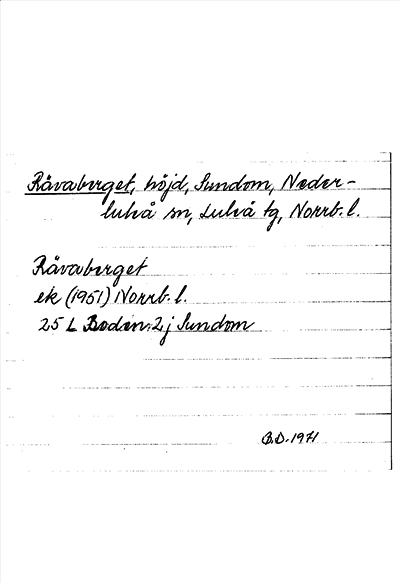 Råvaberget, höjd, Sundom, Neder-
luleå sn, Luleå tg, Norrb. l.
Råvaberget
ek (1951) Norrb. l.
25 L Boden: 2 j Sundom
B.D. 1971